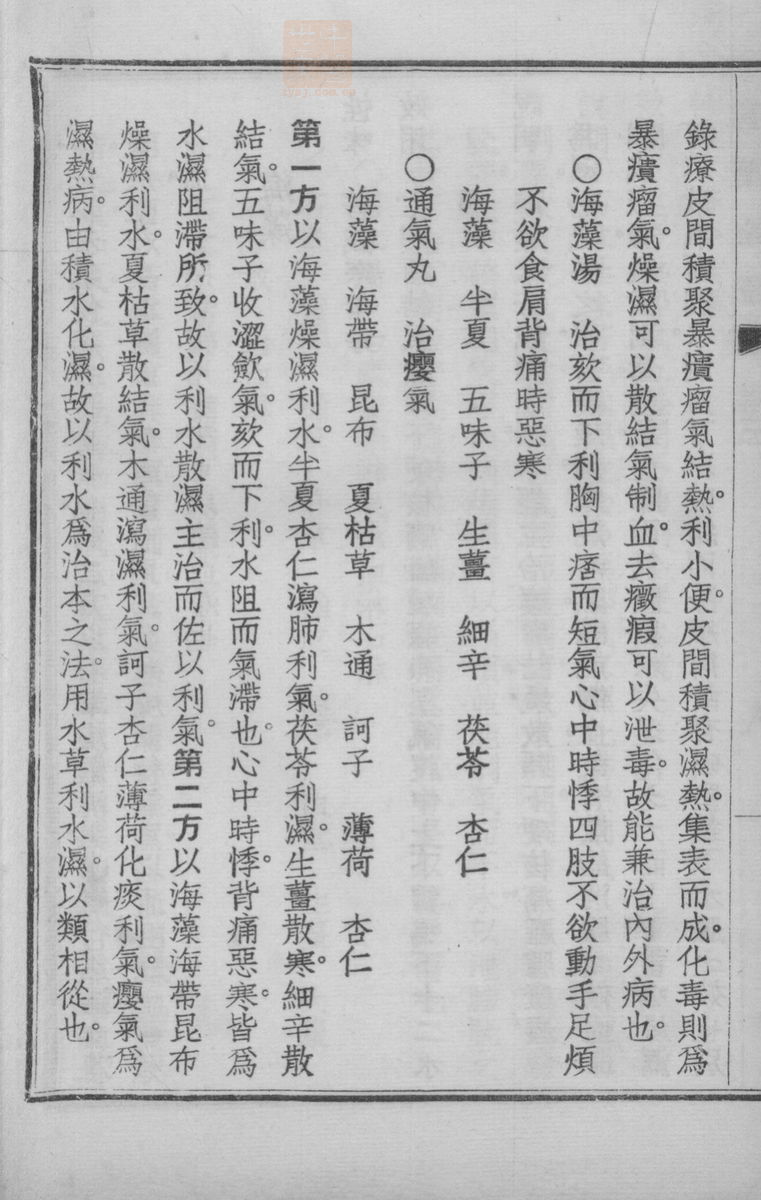 錄療皮間積聚暴㿉瘤氣結熱。利小便。皮間積聚濕熱。集表而成。化毒則爲
暴㿉瘤氣。燥濕可以散結氣制血。去癥瘕可以泄毒。故能兼治內外病也。
〇海藻湯 治欬而下利胸中痞而短氣心中時悸四肢不欲動手足煩
不欲食肩背痛時惡寒
海藻 半夏 五味子 生薑 細辛 茯苓 杏仁
〇通氣丸 治癭氣
海藻 海帶 昆布 夏枯草 木通 訶子 薄荷 杏仁
第一方以海藻燥濕利水。半夏杏仁瀉肺利氣。茯苓利濕。生薑散寒。細辛散
結氣。五味子收澀歛氣。欬而下利。水阻而氣滯也。心中時悸。背痛惡寒。皆爲
水濕阻滯所致。故以利水散濕主治而佐以利氣。第二方以海藻海帶昆布
燥濕利水。夏枯草散結氣。木通瀉濕利氣。訶子杏仁薄荷化痰利氣。癭氣爲
濕熱病。由積水化濕。故以利水爲治本之法。用水草利水濕。以類相從也。
zysj.com.cn